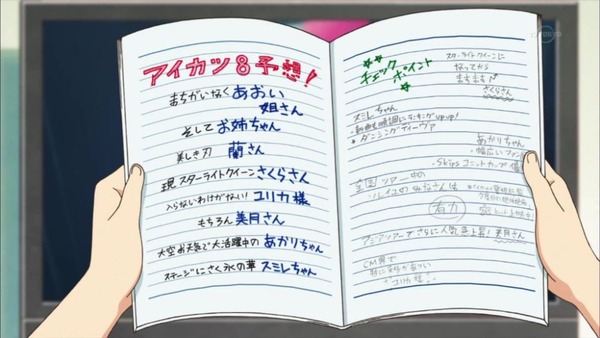 アイカツ8予想!
まちがいなく あおい
姐さん
そして お姉ちゃん
美しき刃 蘭さん
現 スターライトクイーン さくらさん
入らないわけがない! ユリカ様
もちろん 美月さん
大空お天気で大活躍中の あかりちゃん
ステージにさく氷の華 スミレちゃん
チェック
ポイント
スターライトクイーンに
なってから
ますます
さくらさん
スミレちゃん
ダンシングディーヴァ
あかりちゃん
幅広いファン
Skips ユニットカップ
全国ツアー中の
ソレイユのみなさんは
有力
アジアツアーでさらに人気急上昇! 美月さん
CM界で
ユリカ様